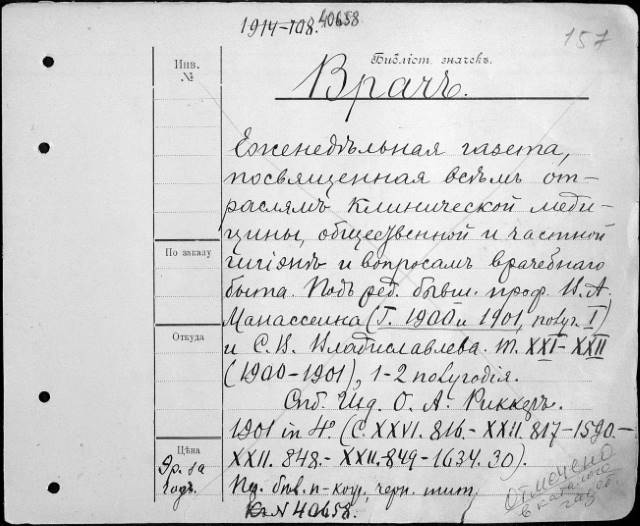 1914-108. 40658
157
Инв.
№
Библіот. значекъ.
Врачъ.
Еженедѣльная газета,
посвященная всѣмъ от-
раслямъ клинической меди-
цины, общественной и частной
гигіенѣ и вопросамъ врачебнаго
быта. Подъ ред. бывш. проф. В. А.
Манассеина (Г. 1900 и 1901, полуг. I)
и С. В. Владиславлева. Т. XXI-XXII
(1900-1901), 1-2 полугодія.
Спб. Изд. О. А. Риккеръ.
1901 in 4º. (С. XXVI. 816.- XXII. 817-1590.-
XXII. 848.- XXII.-849-1634. 30).
По заказу
Откуда
Цѣна
9р. за
годъ.
№ 40658.
Отмечено
в каталоге
газет.